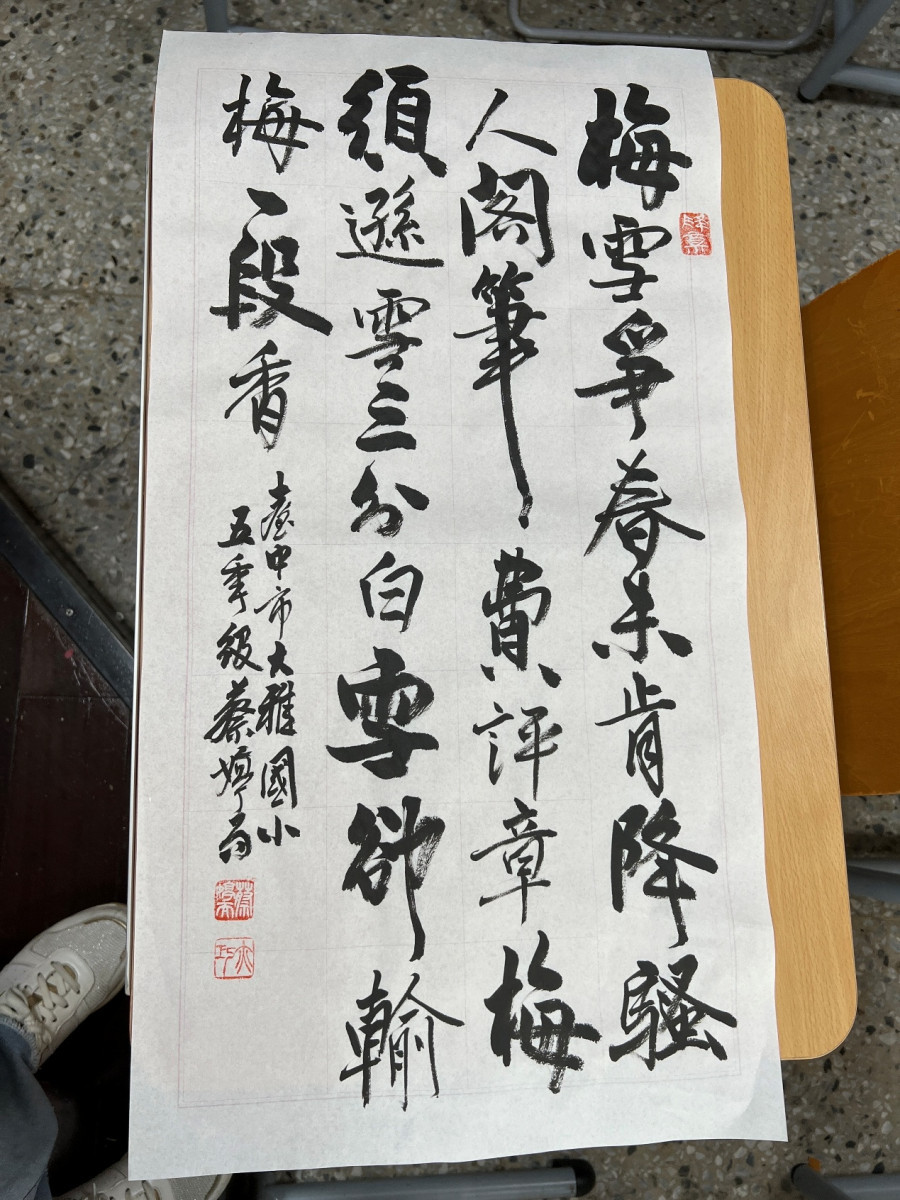 梅雪爭春未肯降騷
人閣筆、費評章梅
須遜雪三分白雪卻輸
梅一段香
臺中市大雅國小
五年級蔡